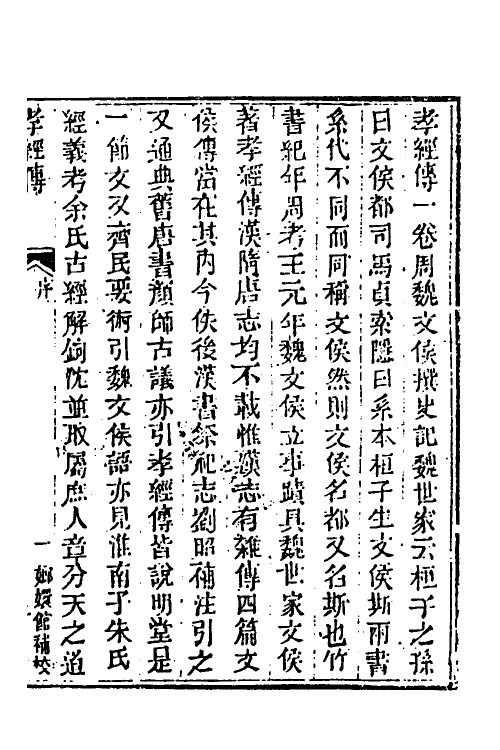 孝經傳一卷周魏文侯撰史記魏世家云桓子之孫
曰文侯都司馬貞索隱曰系本桓子生文侯斯兩書
系代不同而同稱文侯然則文侯名都又名斯也竹
書紀年周考王元年魏文侯立事蹟具魏世家文侯
著孝經傳漢隋唐志均不載惟漢志有雜傳四篇文
侯傳當在其內今佚後漢書祭祀志劉昭補注引之
又通典舊唐書顏師古議亦引孝經傳皆說明堂是
一節文又齊民要術引魏文侯語亦見淮南子朱氏
經義考余氏古經解鉤沈並取屬庶人章分天之道
孝經傳
序
一
嫏嬛館補校